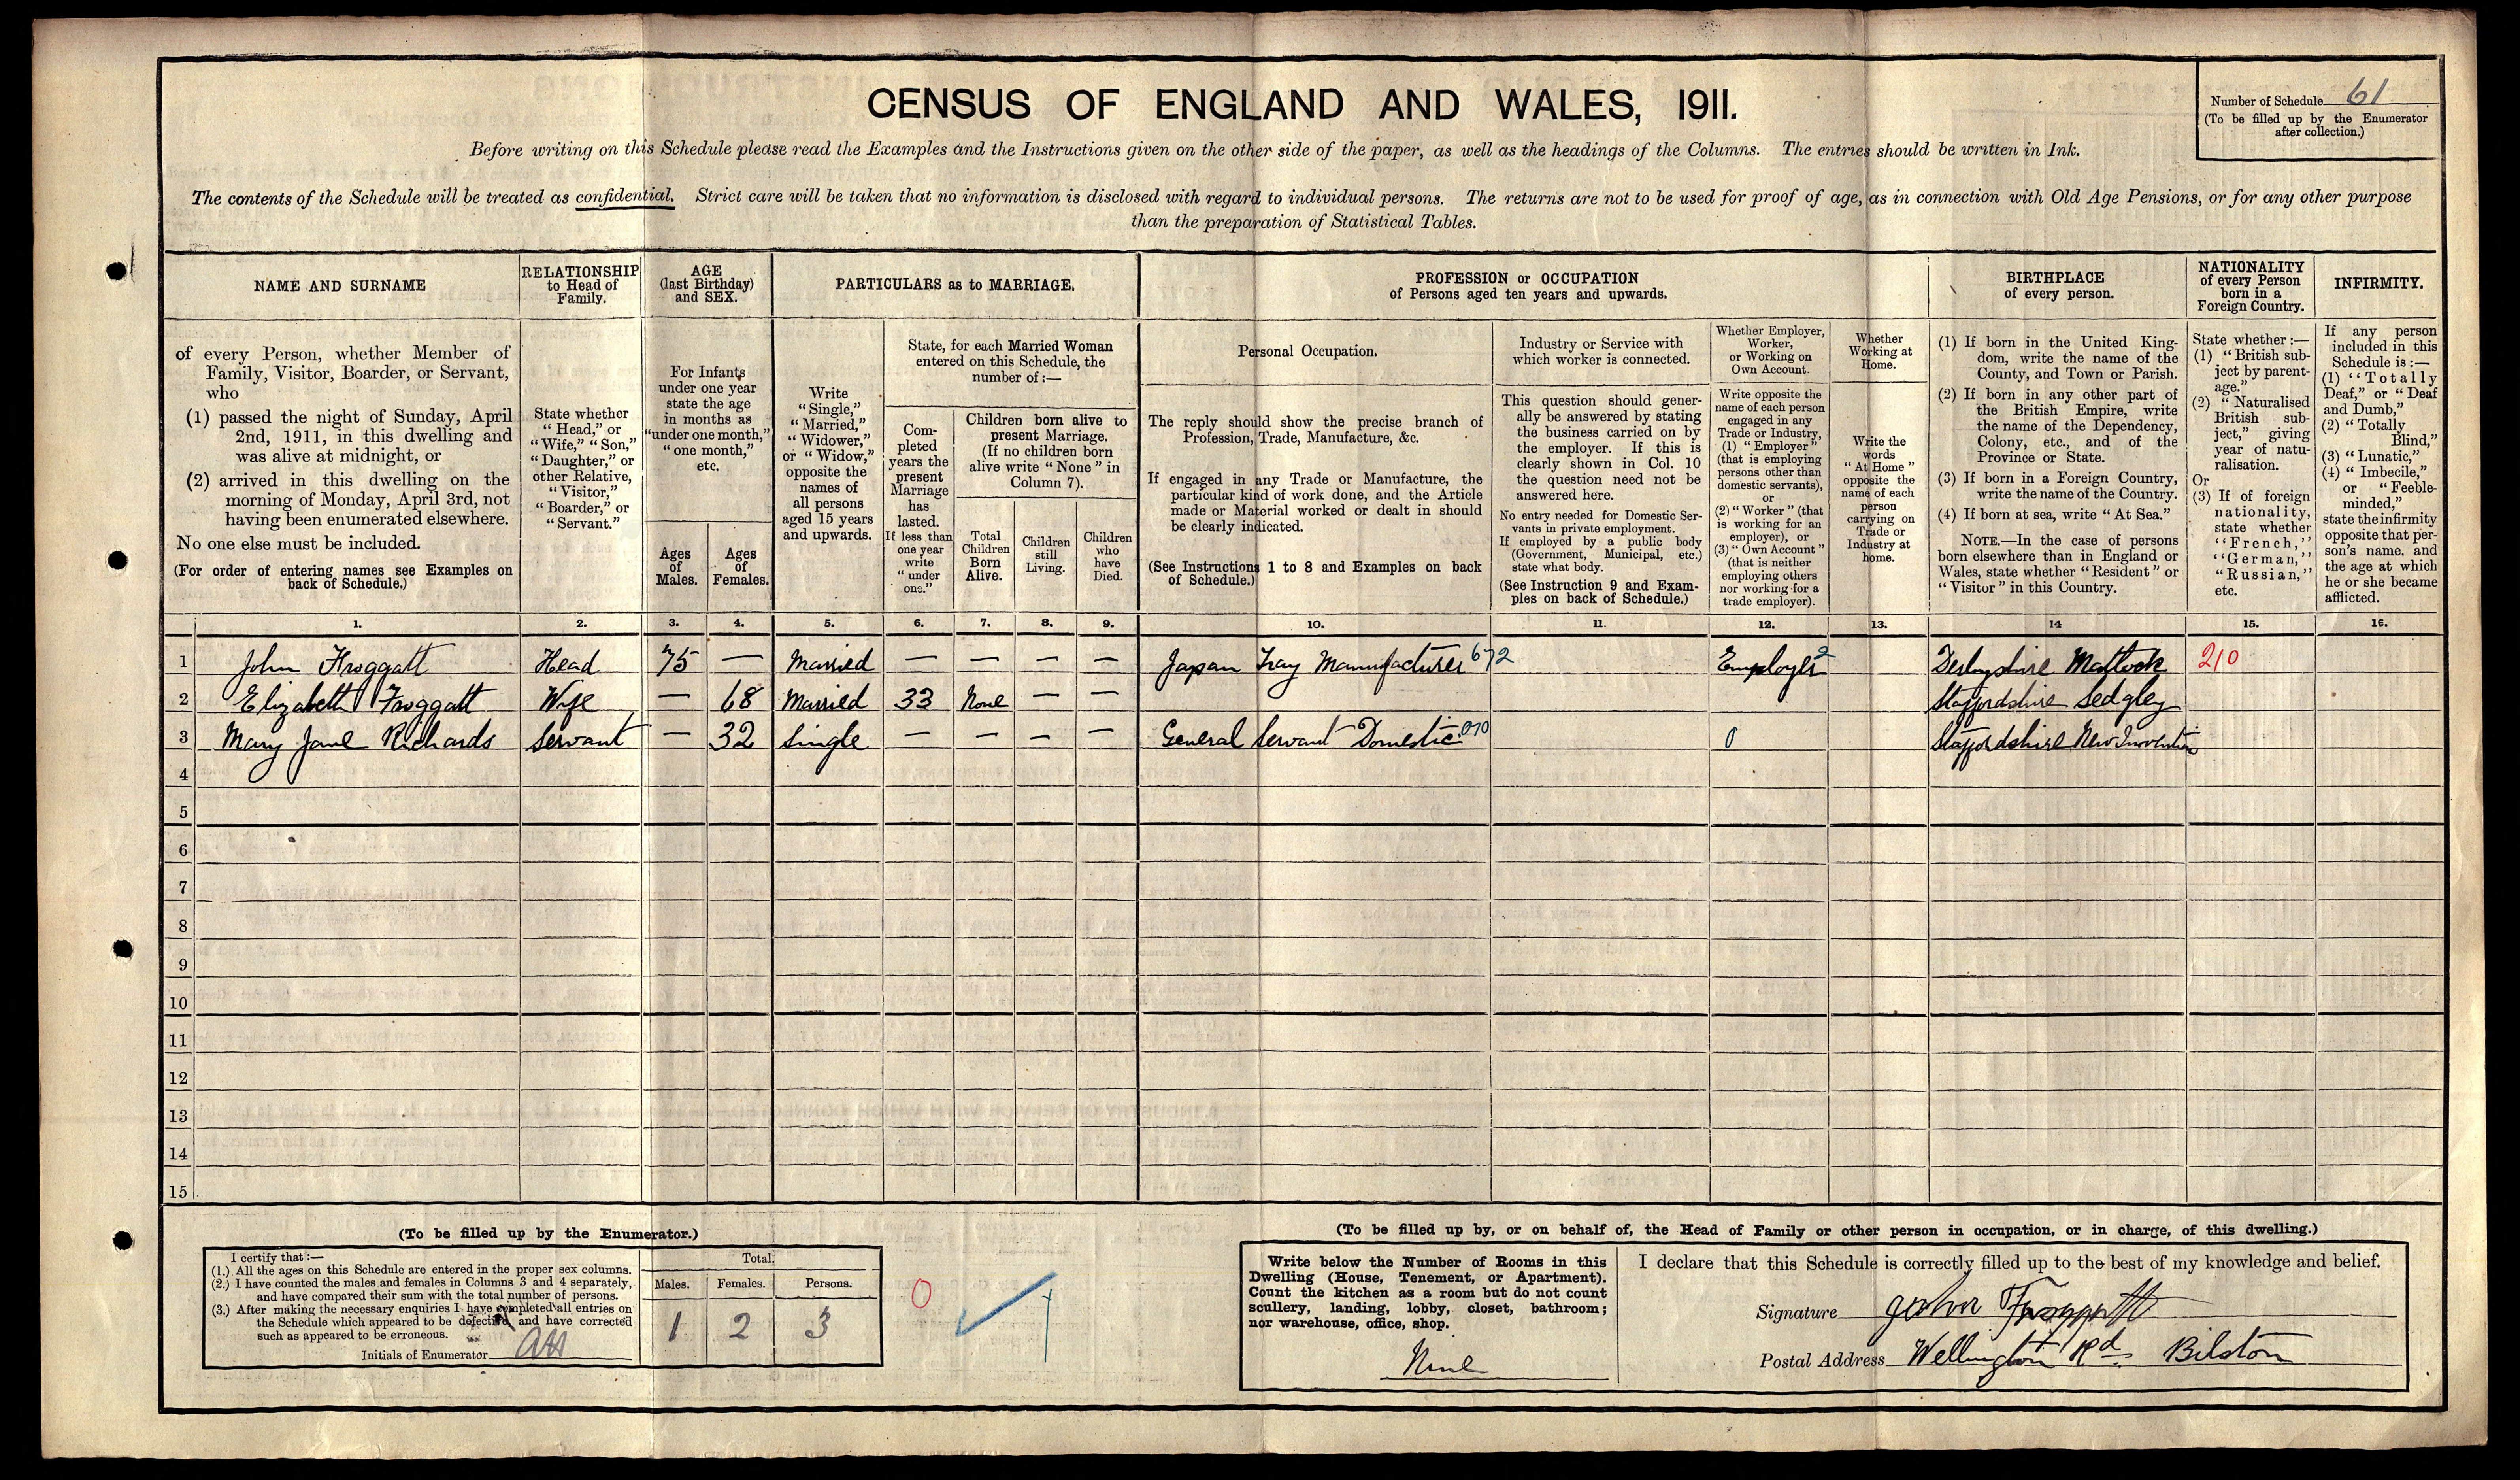 CENSUS OF ENGLAND AND WALES, 1911.
Number of Schedule 61
(To be filled up by the Enumerator
after collection.)
Before writing on this Schedule please read the Examples and the Instructions given on the other side of the paper, as well as the headings of the Columns. The entries should be written in Ink.
The contents of the Schedule will be treated as confidential. Strict care will be taken that no information is disclosed with regard to individual persons. The returns are not to be used for proof of age, as in connection with Old Age Pensions, or for any other purpose
than the preparation of Statistical Tables.
NAME AND SURNAME
of every Person, whether Member of
Family, Visitor, Boarder, or Servant,
who
(1) passed the night of Sunday, April
2nd, 1911, in this dwelling and
was alive at midnight, or
(2) arrived in this dwelling on the
morning of Monday, April 3rd, not
having been enumerated elsewhere.
No one else must be included.
(For order of entering names see Examples on
back of Schedule.)
RELATIONSHIP
to Head of
Family.
State whether
"Head," or
"Wife," "Son,"
"Daughter," or
other Relative,
"Visitor,"
"Boarder," or
"Servant."
AGE
(last Birthday)
and SEX.
For Infants
under one year
state the age
in months as
"under one month,"
"one month,"
etc.
Ages
of
Males.
Ages
of
Females.
PARTICULARS as to MARRIAGE.
Write
"Single,"
"Married,"
"Widower,"
or "Widow,"
opposite the
names of
all persons
aged 15 years
and upwards.
State, for each Married Woman
entered on this Schedule, the
number of :—
Com-
pleted
years the
present
Marriage
has
lasted.
If less than
one year
write
"under
one."
Children born alive to
present Marriage.
(If no children born
alive write "None" in
Column 7).
Total
Children
Born
Alive.
Children
still
Living.
Children
who
have
Died.
PROFESSION or OCCUPATION
of Persons aged ten years and upwards.
Personal Occupation.
The reply should show the precise branch of
Profession, Trade, Manufacture, &c.
If engaged in any Trade or Manufacture, the
particular kind of work done, and the Article
made or Material worked or dealt in should
be clearly indicated.
(See Instructions 1 to 8 and Examples on back
of Schedule.)
Industry or Service with
which worker is connected.
This question should gener-
ally be answered by stating
the business carried on by
the employer. If this is
clearly shown in Col. 10
the question need not be
answered here.
No entry needed for Domestic Ser-
vants in private employment.
If employed by a public body
(Government, Municipal, etc.)
state what body.
(See Instruction 9 and Exam-
ples on back of Schedule.)
Whether Employer,
Worker,
or Working on
Own Account.
Write opposite the
name of each person
engaged in any
Trade or Industry,
(1) "Employer"
(that is employing
persons other than
domestic servants),
or
(2) "Worker" (that
is working for an
employer), or
(3) "Own Account"
(that is neither
employing others
nor working for a
trade employer).
Whether
Working at
Home.
Write the
words
"At Home"
opposite the
name of each
person
carrying on
Trade or
Industry at
home.
BIRTHPLACE
of every person.
(1) If born in the United King-
dom, write the name of the
County, and Town or Parish.
(2) If born in any other part of
the British Empire, write
the name of the Dependency,
Colony, etc., and of the
Province or State.
(3) If born in a Foreign Country,
write the name of the Country.
(4) If born at sea, write "At Sea."
NOTE.—In the case of persons
born elsewhere than in England or
Wales, state whether "Resident" or
"Visitor" in this Country.
NATIONALITY
of every Person
born in a
Foreign Country.
State whether :—
(1) "British sub-
ject by parent-
age."
(2) "Naturalised
British sub-
ject," giving
year of natu-
ralisation.
Or
(3) If of foreign
nationality,
state whether
"French,"
"German,"
"Russian,"
etc.
INFIRMITY.
If any person
included in this
Schedule is :—
(1) "Totally
Deaf," or "Deaf
and Dumb,"
(2) "Totally
Blind,"
(3) "Lunatic,"
(4) "Imbecile,"
or "Feeble-
minded,"
state the infirmity
opposite that per-
son's name, and
the age at which
he or she became
afflicted.
1. 2. 3. 4. 5. 6. 7. 8. 9. 10. 11. 12. 13. 14 15. 16.
1 John Froggatt Head 75 — Married — — — — Japan Tray Manufacturer 672 Employer 2 Derbyshire Matlock 210
2 Elizabeth Froggatt Wife — 68 Married 33 None — — Staffordshire Sedgley
3 Mary Jane Richards Servant — 32 Single — — — — General Servant Domestic 010 0 Staffordshire New Invention
4
5
6
7
8
9
10
11
12
13
14
15
(To be filled up by the Enumerator.)
I certify that :—
(1.) All the ages on this Schedule are entered in the proper sex columns.
(2.) I have counted the males and females in Columns 3 and 4 separately,
and have compared their sum with the total number of persons.
(3.) After making the necessary enquiries I have completed all entries on
the Schedule which appeared to be defective, and have corrected
such as appeared to be erroneous.
Initials of Enumerator
Total.
Males. Females. Persons.
1 2 3
0
(To be filled up by, or on behalf of, the Head of Family or other person in occupation, or in charge, of this dwelling.)
Write below the Number of Rooms in this
Dwelling (House, Tenement, or Apartment).
Count the kitchen as a room but do not count
scullery, landing, lobby, closet, bathroom;
nor warehouse, office, shop.
Nine
I declare that this Schedule is correctly filled up to the best of my knowledge and belief.
Signature John Froggatt
Postal Address Wellington Rd Bilston